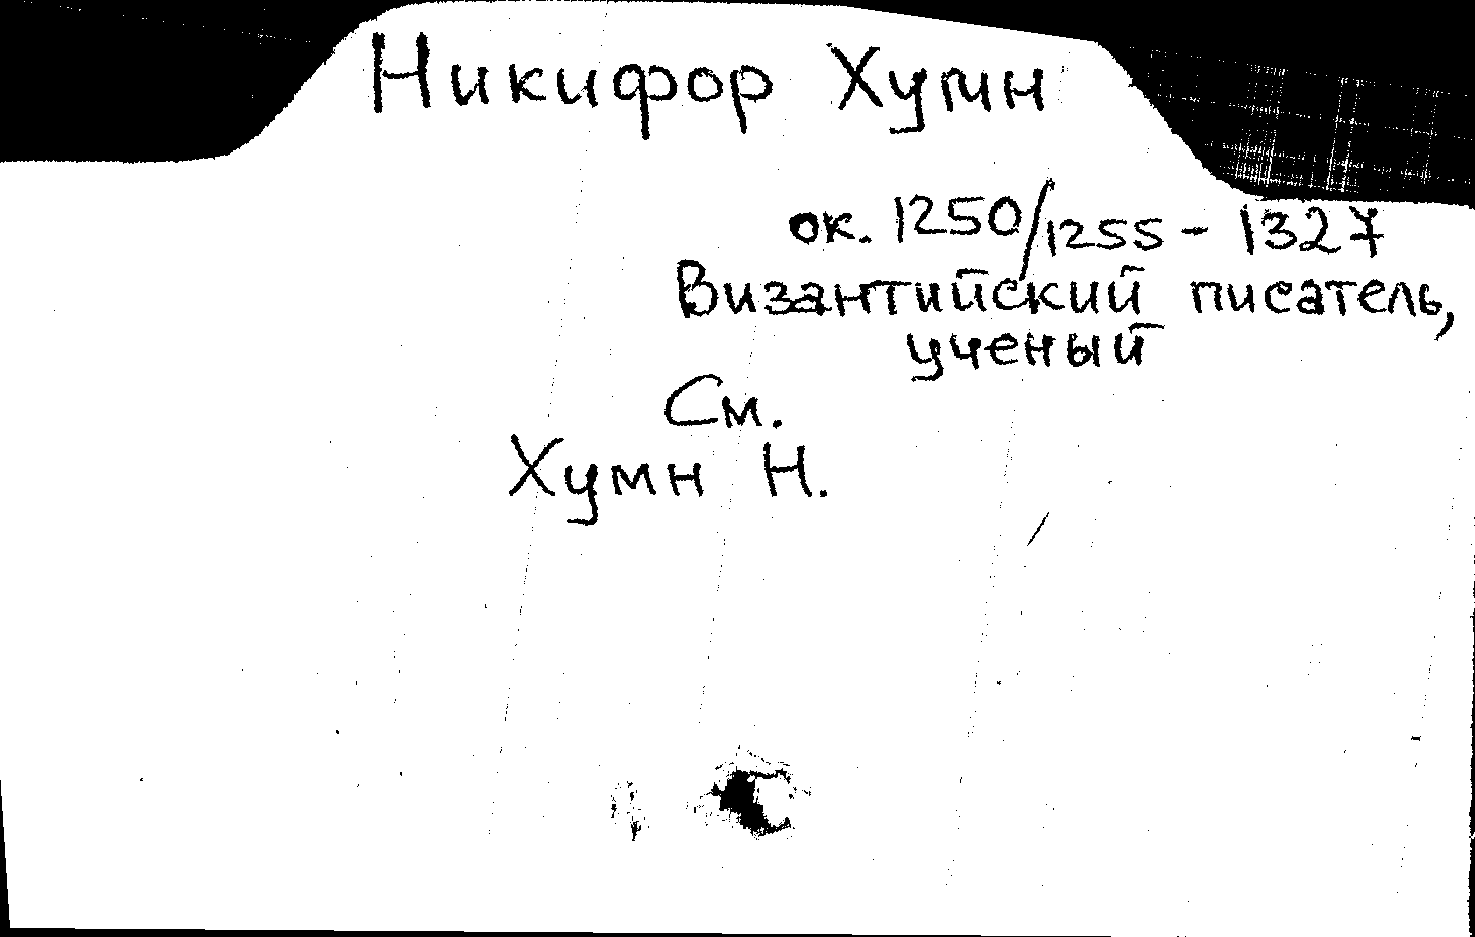 Никифор Хумн
ок. 1250/1255 - 1327
Византийский писатель,
ученый
См.
Хумн Н.